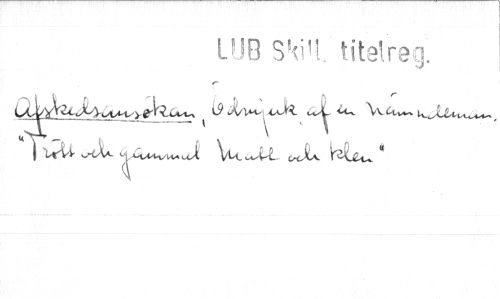 LUB Skill. titelreg.
Afskedsansökan, Ödmjuk, af en Nämndeman.
"Trött och gammal Matt och klen"